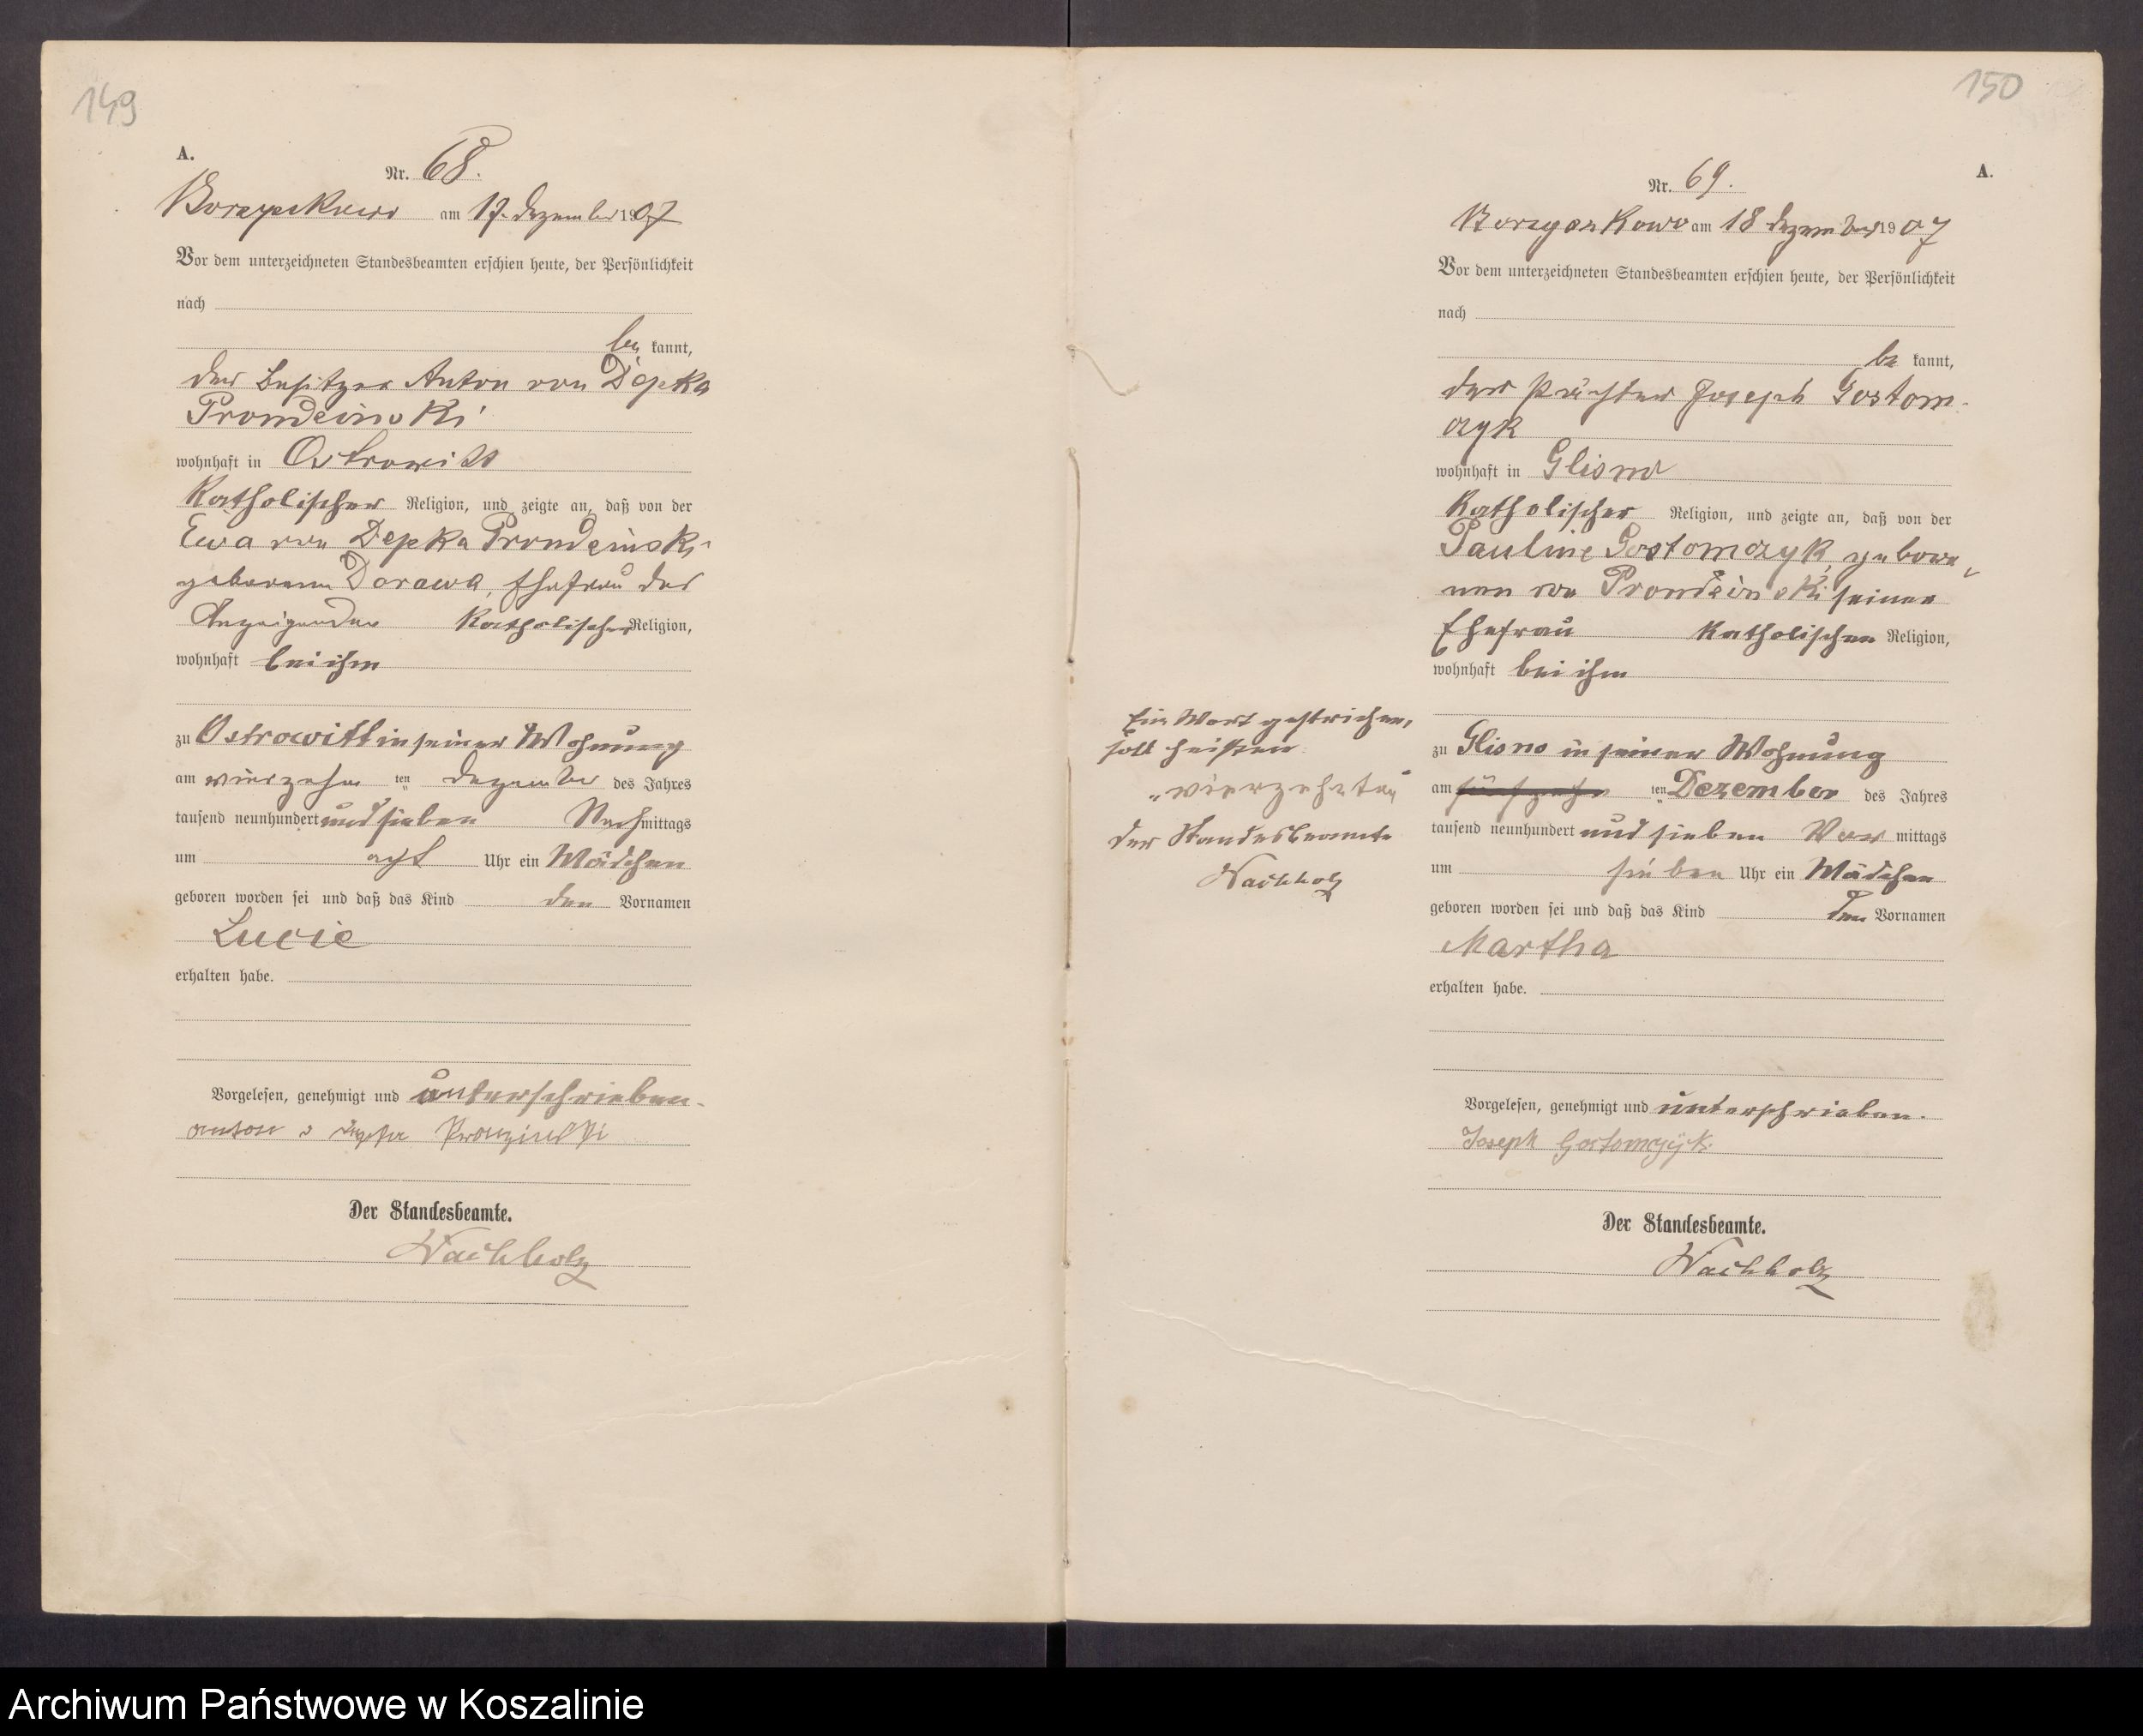 149
A.
Nr. 68.
Borzyskowo am 17. Dezember 1907
Vor dem unterzeichneten Standesbeamten erschien heute, der Persönlichkeit
nach
be kannt,
der Besitzer Anton von Depka
Prondzinski
wohnhaft in Ostrowitt
katholischer Religion, und zeigte an, daß von der
Eva von Depka Prondzinski
geborenen Dorawa, Ehefrau des
Anzeigenden katholischer Religion,
wohnhaft bei ihm
zu Ostrowitt in seiner Wohnung
am vierzehn ten Dezember des Jahres
tausend neunhundert und sieben Nachmittags
um acht Uhr ein Mädchen
geboren worden sei und daß das Kind den Vornamen
Lucie
erhalten habe.
Vorgelesen, genehmigt und unterschrieben.
Anton v Depka
Der Standesbeamte.
Wachholz
150
A.
Nr. 69.
Borzyskowo am 18 Dezember 1907
Vor dem unterzeichneten Standesbeamten erschien heute, der Persönlichkeit
nach
be kannt,
der Pächter Joseph Gostom-
czyk
wohnhaft in Glisno
katholischer Religion, und zeigte an, daß von der
Pauline Gostomczyk, gebore-
nen von Prondzinski seiner
Ehefrau katholischen Religion,
wohnhaft bei ihm
zu Glisno in seiner Wohnung
am fünfzehn ten Dezember des Jahres
tausend neunhundert und sieben Vor mittags
um sieben Uhr ein Mädchen
geboren worden sei und daß das Kind den Vornamen
Martha
erhalten habe.
Ein Wort gestrichen,
soll heißen
"vierzehnten"
Der Standesbeamte
Wachholz
Vorgelesen, genehmigt und unterschrieben.
Joseph Gostomczyk.
Der Standesbeamte.
Wachholz
Archiwum Państwowe w Koszalinie